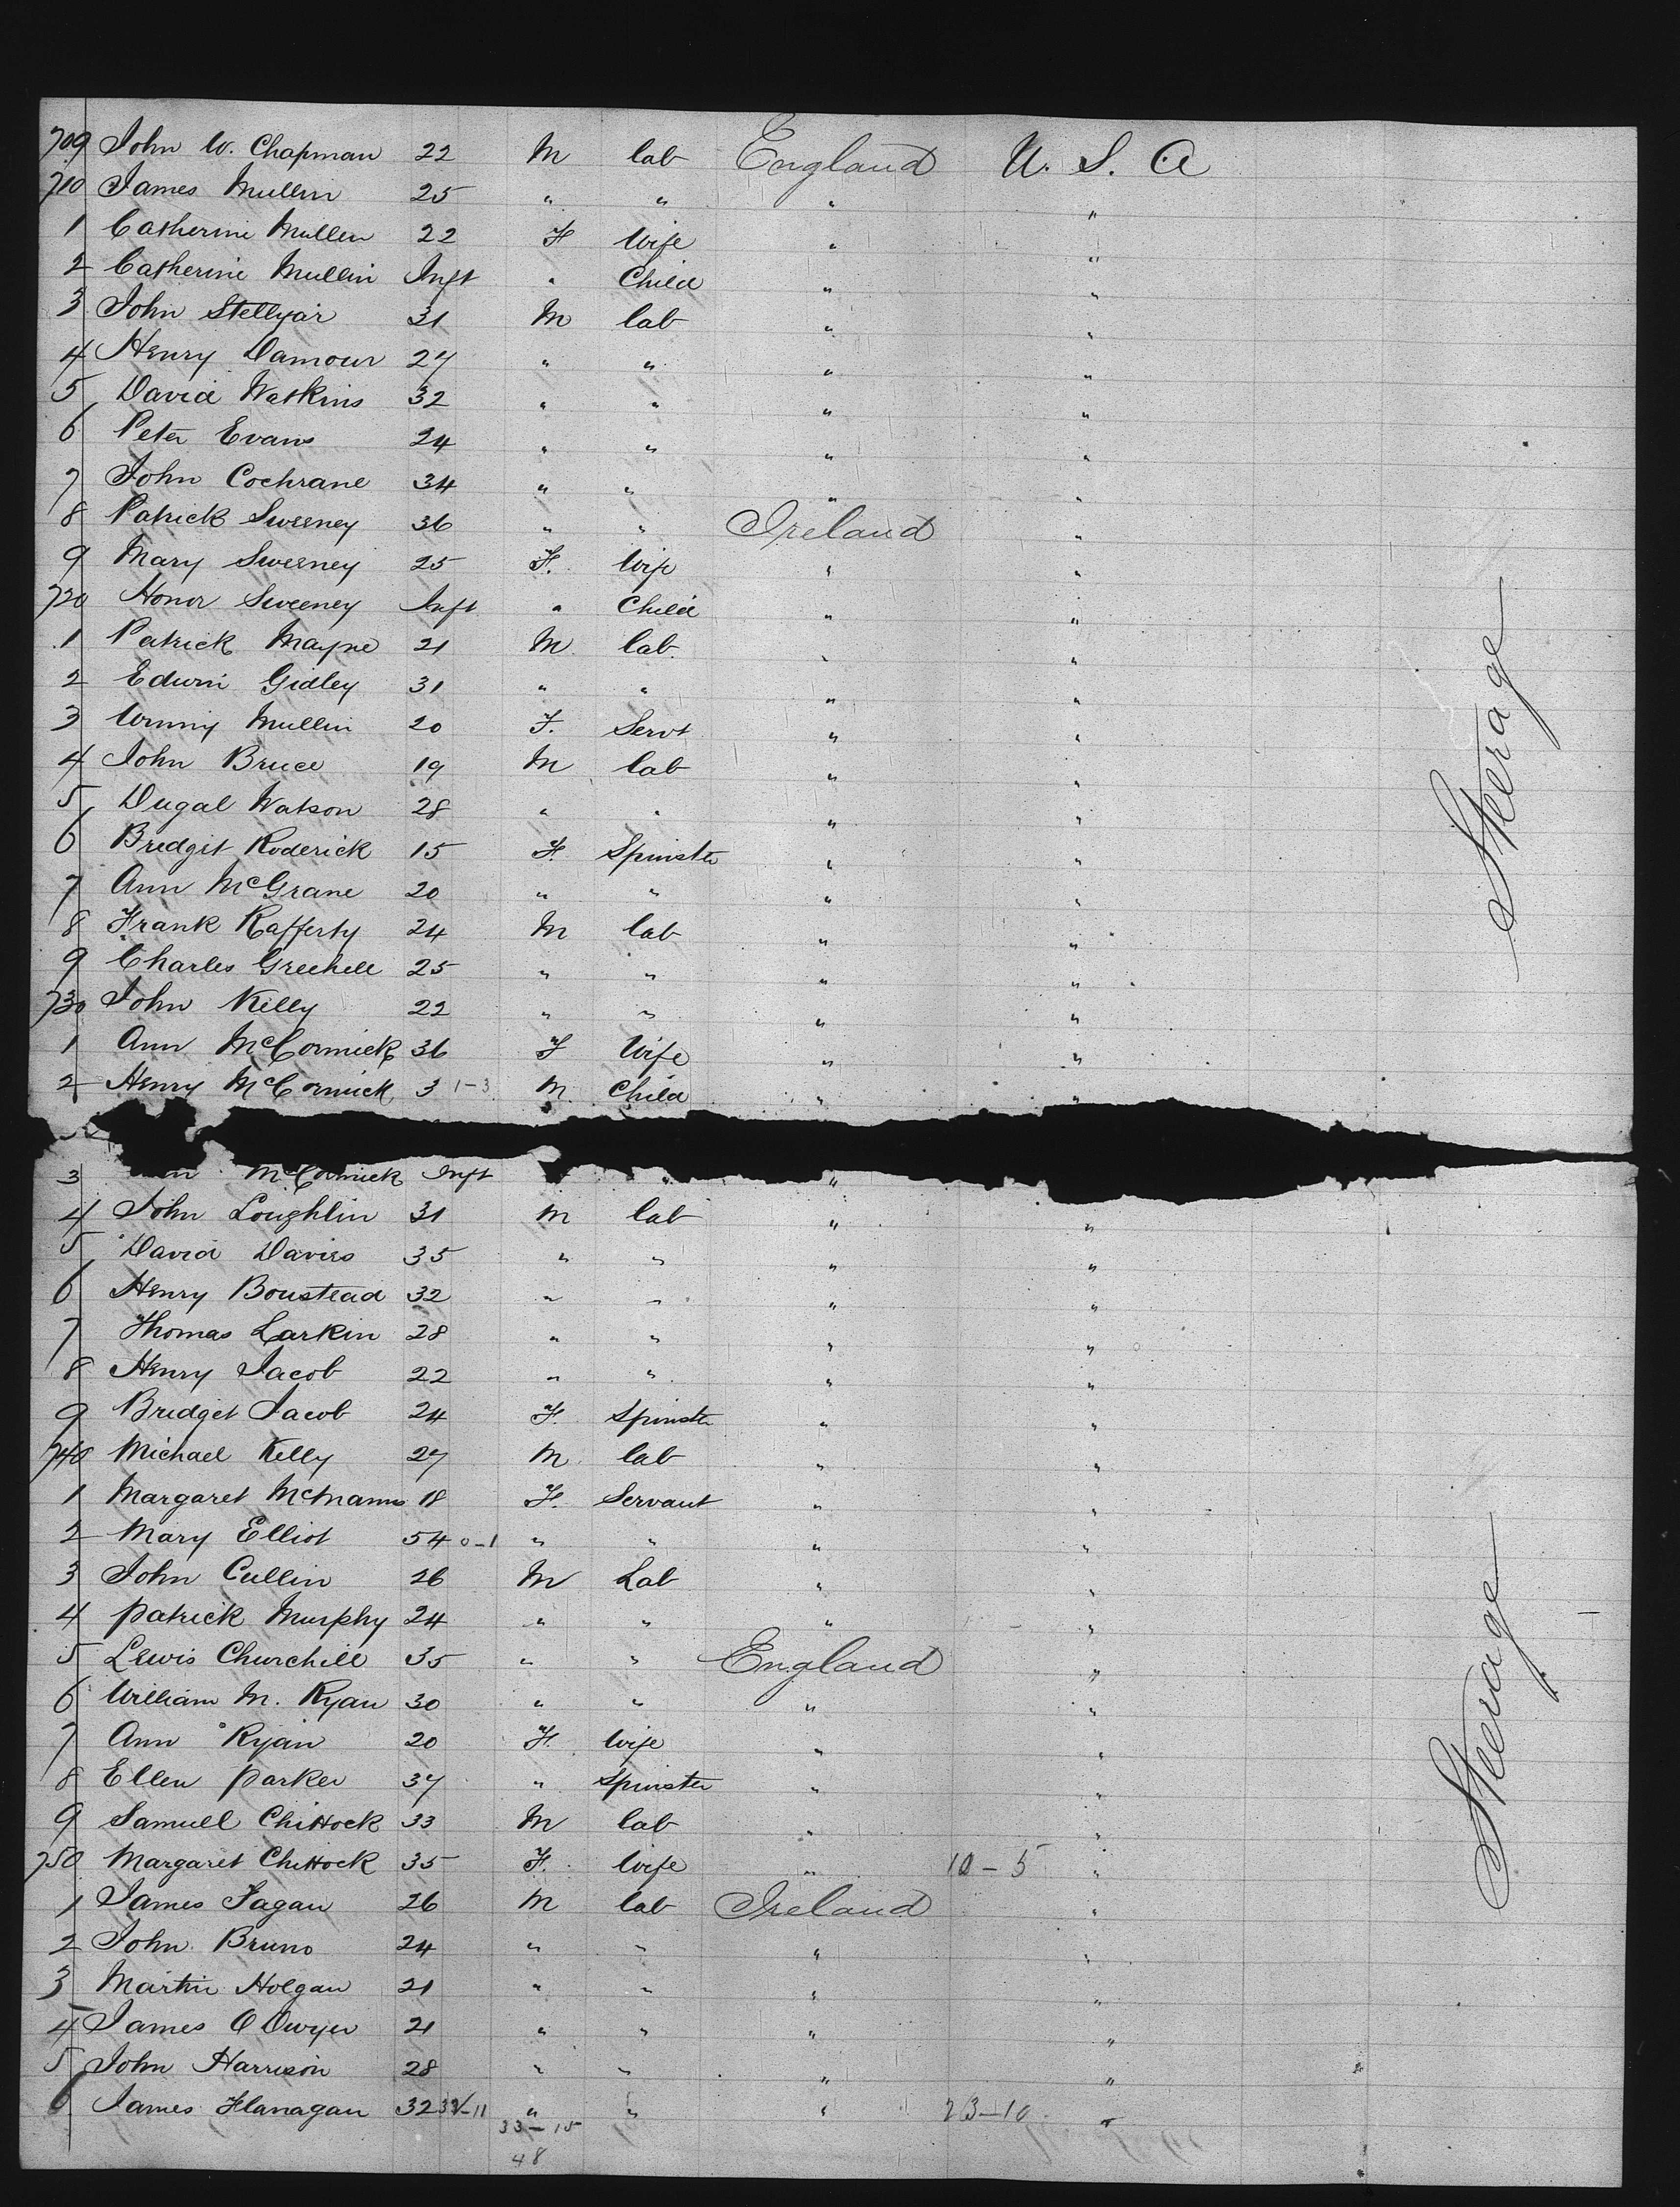 709 John W. Chapman 22 M lab England U. S. A
710 James Mullin 25 " " " "
1 Catherine Mullen 22 F Wife " "
2 Catherine Mullin Inft " Child " "
3 John Stellyar 31 M lab " "
4 Henry Damour 27 " " " "
5 David Watkins 32 " " " "
6 Peter Evans 24 " " " "
7 John Cochrane 34 " " " "
8 Patrick Sweeney 36 " " Ireland "
9 Mary Sweeney 25 F. Wife " "
720 Honor Sweeney Inft " Child " "
1 Patrick Mayne 21 M lab " "
2 Edwin Gidley 31 " " " "
3 Winny Mullin 20 F. Servt " "
4 John Bruce 19 M lab " "
5 Dugal Watson 28 " " " "
6 Bredget Roderick 15 F. Spinster " "
7 Ann McGrane 20 " " " "
8 Frank Rafferty 24 M lab " "
9 Charles Greehell 25 " " " "
730 John Kelly 22 " " " "
1 Ann McCormick 36 F Wife " "
2 Henry McCormick 3 1-3 M Child " "
3 McCormick Inft " "
4 John Loughlin 31 M lab " "
5 David Davies 35 " " " "
6 Henry Boustead 32 " " " "
7 Thomas Larkin 28 " " " "
8 Henry Jacob 22 " " " "
9 Bridget Jacob 24 F. Spinster " "
740 Michael Kelly 27 M lab " "
1 Margaret McManns 18 F. Servant " "
2 Mary Elliot 54 0-1 " " " "
3 John Cullin 26 M Lab " "
4 Patrick Murphy 24 " " " "
5 Lewis Churchill 35 " " England "
6 William M. Ryan 30 " " " "
7 Ann Ryan 20 F. Wife " "
8 Ellen Parker 37 " Spinster " "
9 Samuel Chittock 33 M lab " "
750 Margaret Chittock 35 F. Wife " 10-5 "
1 James Fagan 26 M lab Ireland "
2 John Bruno 24 " " " "
3 Martin Holgan 21 " " " "
4 James O Dwyer 21 " " " "
5 John Harrison 28 " " " "
6 James Flanagan 32 33-11 " " " 23-10 "
33-15
48
Steerage
Steerage